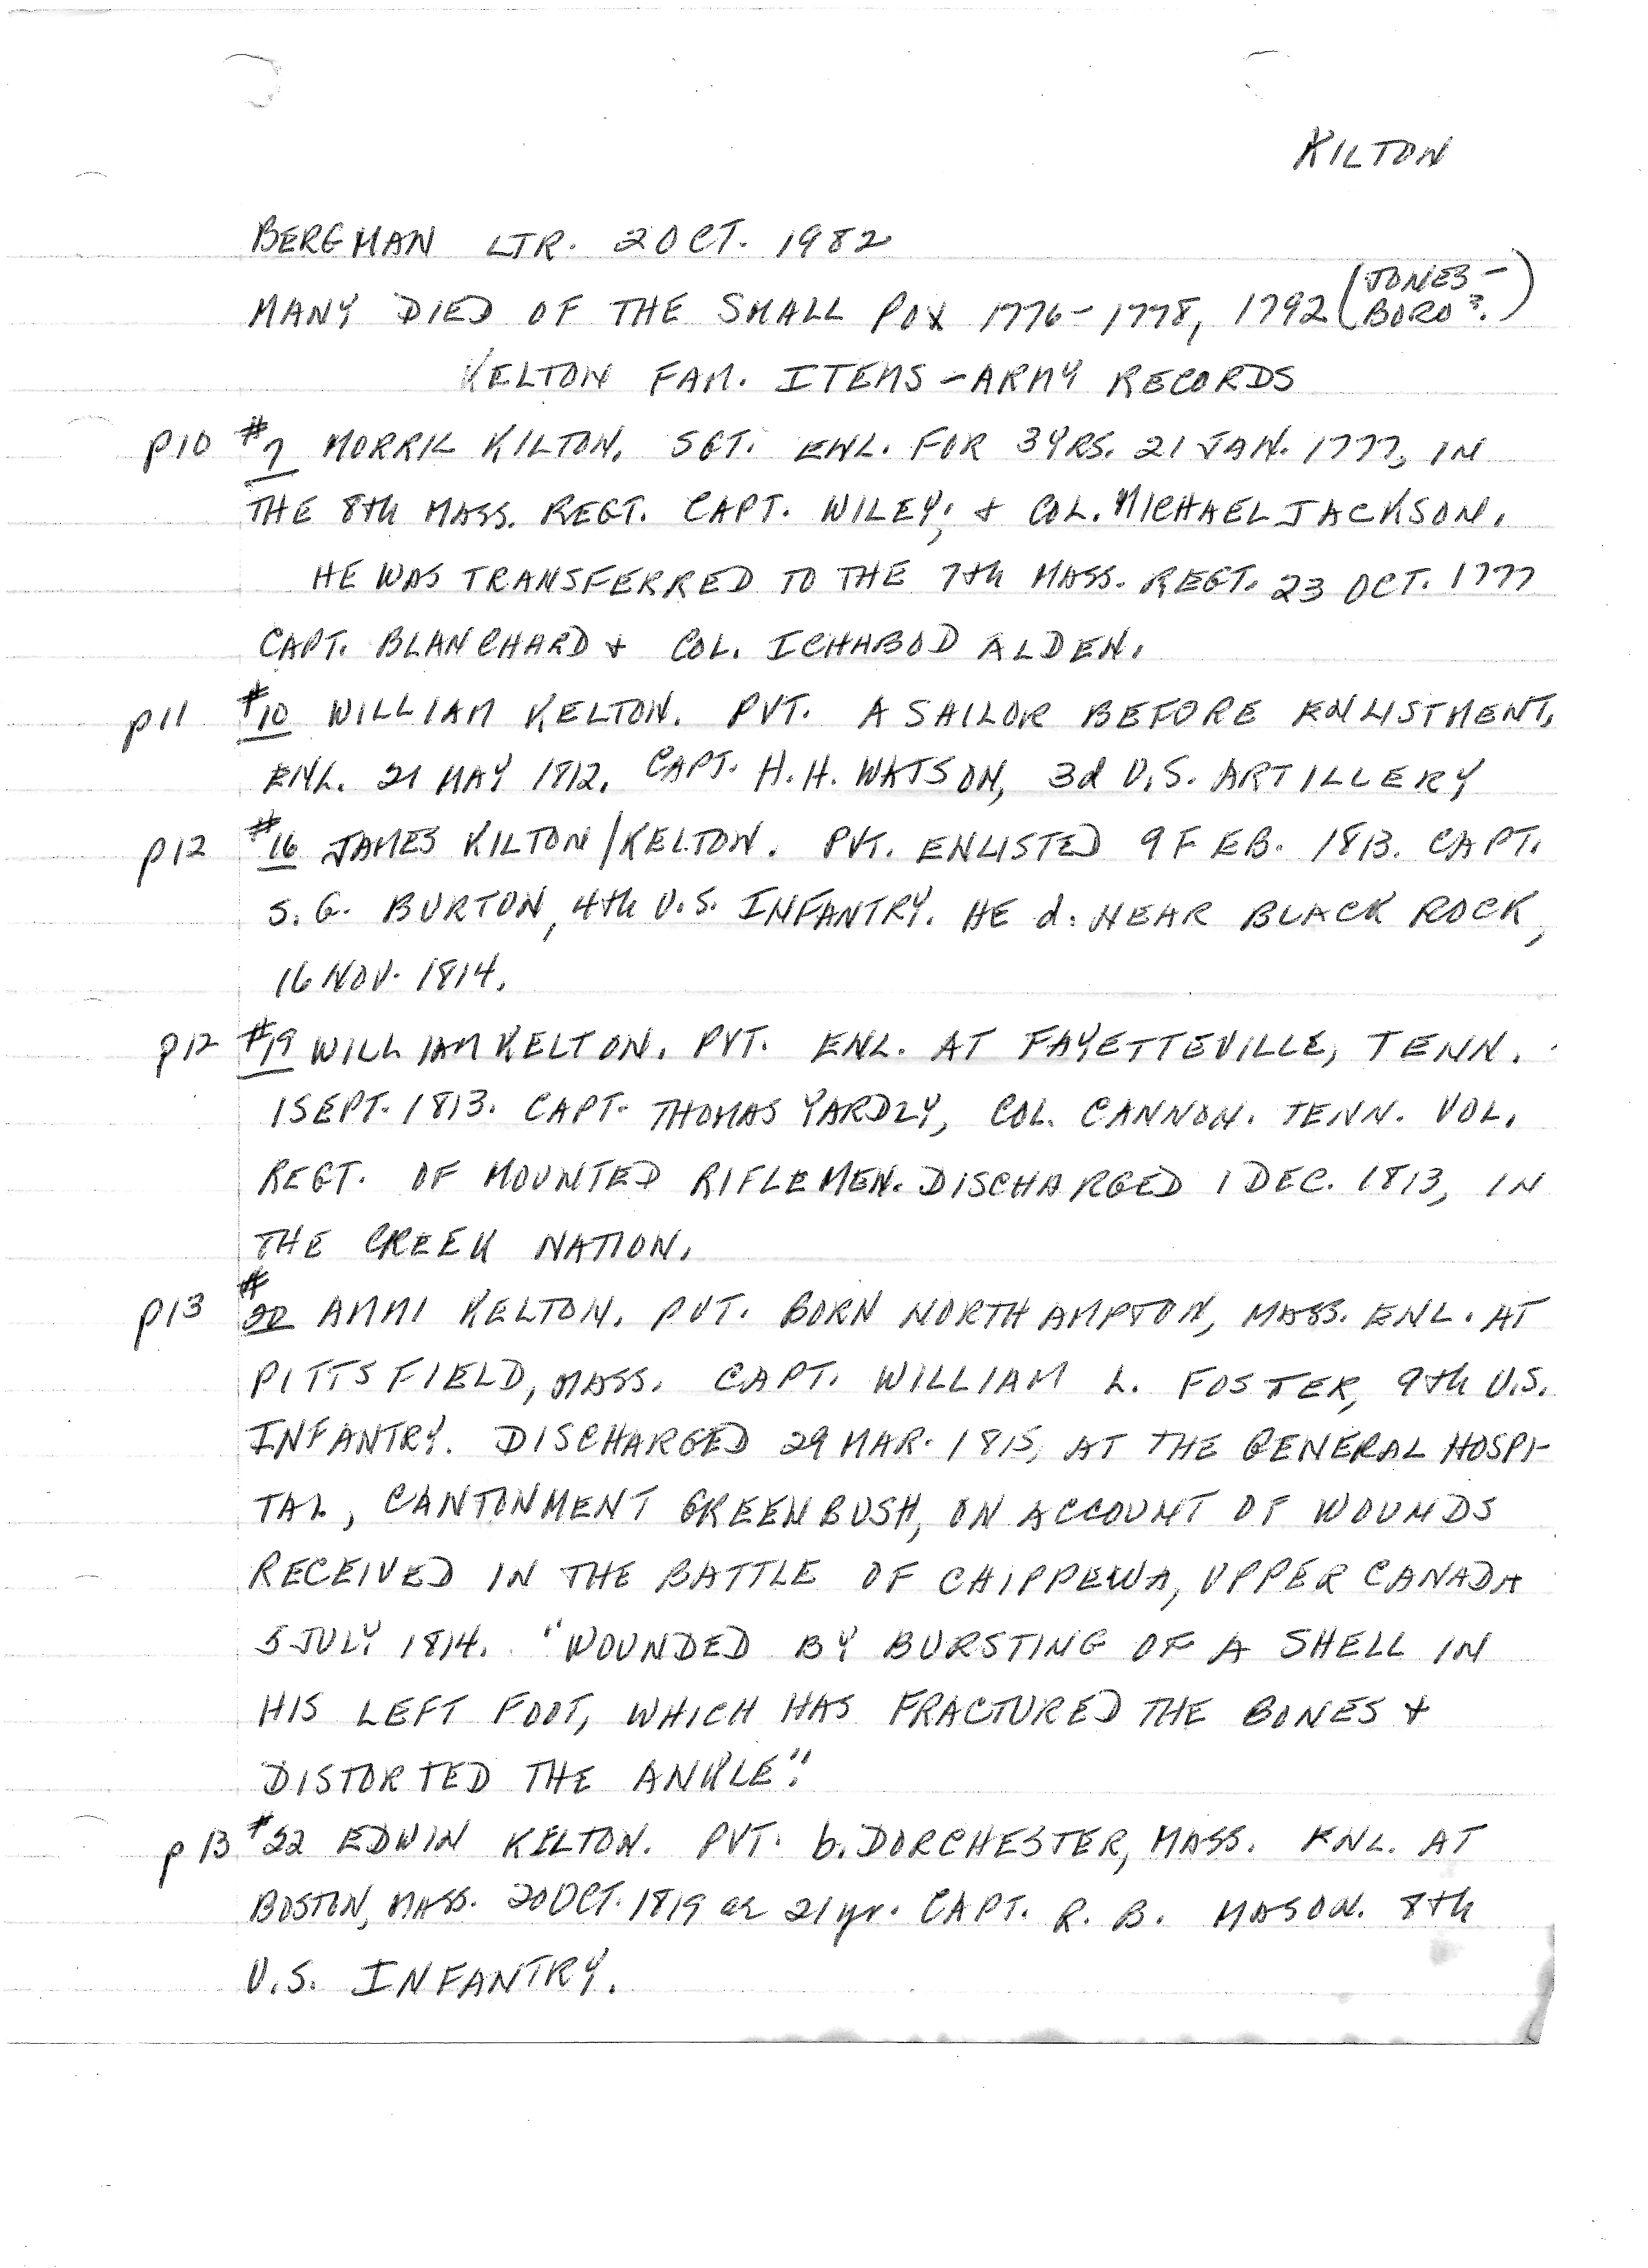 KILTON
BERGMAN LTR. 2 OCT. 1982
MANY DIED OF THE SMALL POX 1776-1778, 1792 (JONES-BORO?)
KELTON FAM. ITEMS - ARMY RECORDS
p10 #7 MORRIL KILTON. SGT. ENL. FOR 3 YRS. 21 JAN. 1777, IN
THE 8th MASS. REGT. CAPT. WILEY; & COL. MICHAEL JACKSON.
HE WAS TRANSFERRED TO THE 7th MASS. REGT. 23 OCT. 1777
CAPT. BLANCHARD & COL. ICHABOD ALDEN.
p11 #10 WILLIAM KELTON. PVT. A SAILOR BEFORE ENLISTMENT.
ENL. 21 MAY 1812. CAPT. H. H. WATSON, 3d U.S. ARTILLERY
p12 #16 JAMES KILTON/KELTON. PVT. ENLISTED 9 FEB. 1813. CAPT.
S. G. BURTON, 4th U.S. INFANTRY. HE d. NEAR BLACK ROCK,
16 NOV. 1814.
p12 #19 WILLIAM KELTON. PVT. ENL. AT FAYETTEVILLE, TENN.
1 SEPT. 1813. CAPT. THOMAS YARDLY, COL. CANNON. TENN. VOL.
REGT. OF MOUNTED RIFLEMEN. DISCHARGED 1 DEC. 1813, IN
THE CREEK NATION.
p13 #20 AMMI KELTON. PVT. BORN NORTHAMPTON, MASS. ENL. AT
PITTSFIELD, MASS. CAPT. WILLIAM L. FOSTER, 9th U.S.
INFANTRY. DISCHARGED 29 MAR. 1815, AT THE GENERAL HOSPI-
TAL, CANTONMENT GREENBUSH, ON ACCOUNT OF WOUNDS
RECEIVED IN THE BATTLE OF CHIPPEWA, UPPER CANADA
5 JULY 1814. "WOUNDED BY BURSTING OF A SHELL IN
HIS LEFT FOOT, WHICH HAS FRACTURED THE BONES &
DISTORTED THE ANKLE."
p13 #22 EDWIN KELTON. PVT. b. DORCHESTER, MASS. ENL. AT
BOSTON, MASS. 20 OCT. 1819 ae 21 yr. CAPT. R. B. MASON. 8th
U.S. INFANTRY.